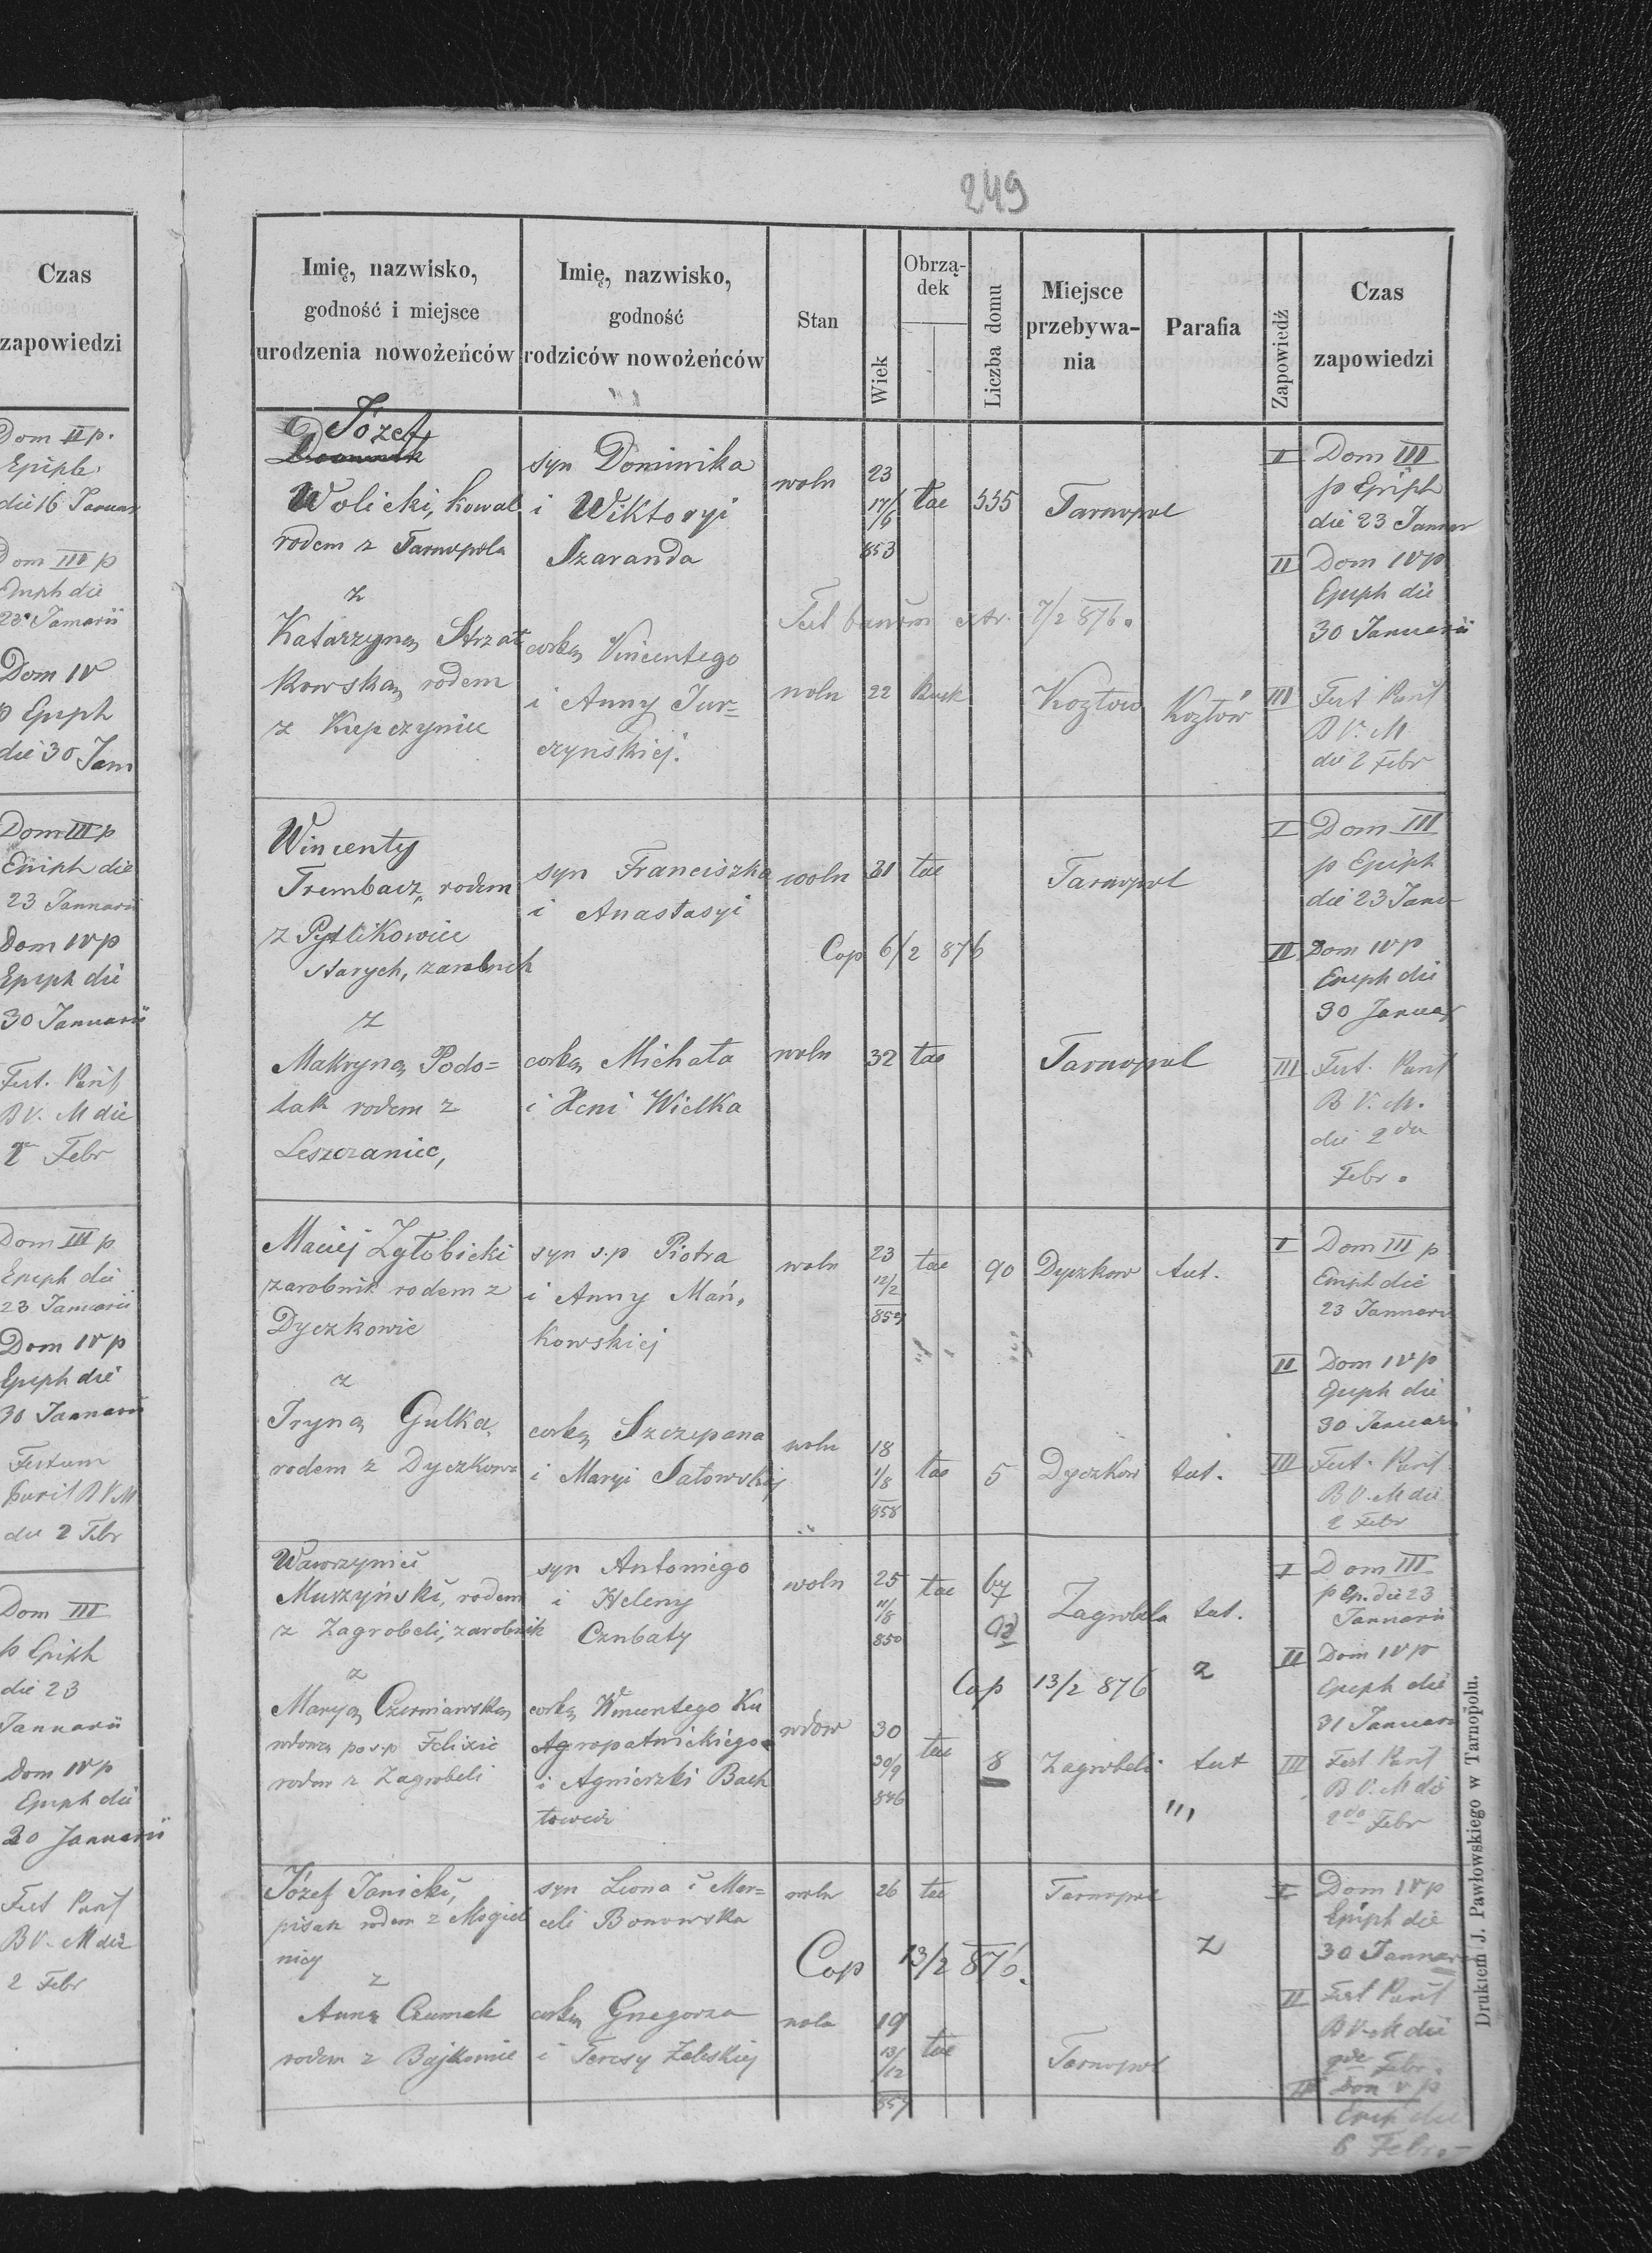 249
Czas
zapowiedzi
Dom II p.
Epiph.
die 16 Januar
Dom III p
Epiph die
23 Januarii
Dom IV
p Epiph
die 30 Jan
Dom III p
Epiph die
23 Januarii
Dom IV p
Epiph die
30 Januarii
Fest. Purif
B V. M die
2 Febr
Dom III p
Epiph die
23 Januarii
Dom IV p
Epiph die
30 Januarii
Festum
Purif B V M
die 2 Febr
Dom III
p Epiph
die 23
Januarii
Dom IV p
Epiph die
30 Januarii
Fest Purif
B V. M die
2 Febr
Imię, nazwisko,
godność i miejsce
urodzenia nowożeńców
Imię, nazwisko,
godność
rodziców nowożeńców
Stan
Wiek
Obrzą-
dek
Liczba domu
Miejsce
przebywa-
nia
Parafia
Zapowiedź
Czas
zapowiedzi
Józef
Dominik
Wolicki, kowal
rodem z Tarnopola
syn Dominika
i Wiktoryi
Szaranda
woln
23
17/6
853
tac
535
Tarnopol
I Dom III
p Epiph
die 23 Januar
II Dom IV p
Epiph die
30 Januarii
z
Katarzyną Strzał
kowską rodem
z
córką Vincentego
i Anny Jur=
czyńskiej.
7/2 876.
woln
22
Rusk
Kozłow
Kozłów
III Fest Purif
B V. M
die 2 Febr
Wincenty
Trembacz, rodem
z Pydlikowiec
starych, zarobnik
syn Franciszka
i Anastasyi
woln
31
tac
Tarnopol
Cop 6/2 876
I Dom III
p Epiph
die 23 Janu
II Dom IV p
Epiph die
30 Januar
z
Makryną Podo=
lak rodem z
Leszczaniec,
córką Michała
i Xeni Wielka
woln
32
tac
Tarnopol
III Fest. Purif
B V. M.
die 2da
Febr.
Maciej Zgłobicki
zarobnik rodem z
Dyczkowie
syn s.p Piotra
i Anny Mań,
kowskiej
woln
23
12/2
tac
90
Dyczkow
tut.
I Dom III p
Epiph die
23 Januarii
II Dom IV p
Epiph die
30 Januari
z
Iryną Gulka,
rodem z Dyczkowa
córką Szczepana
i Maryi Sałowskiej
woln
18
1/8
858
tac
5
Dyczkow
tut.
III Fest. Purif
B V. M die
2 Febr
Wawrzyniec
Muszyński, rodem
z Zagrobeli, zarobnik
syn Antoniego
i Heleny
Czubaty
woln
25
11/8
850
tac
67
Zagrobela
tut.
Cop 13/2 876
z
I Dom III
p Ep. die 23
Januarii
II Dom IV p
Epiph die
31 Januarii
z
Maryą Czerniawską
wdową po s.p Felixie
rodem z Zagrobeli
córką Wincentego Ku
ropatnickiego
i Agnieszki Bach
wdow
30
30/9
846
tac
8
Zagrobeli
tut
III Fest Purif
B V. M die
2da Febr
Józef Janicki,
pisarz rodem z Mogiel
nicy
syn Leona i Mar=
celi Bonowska
woln
26
tac
Tarnopol
Cop 13/2 876.
z
I Dom IV p
Epiph die
30 Januar
z
Anną Czumak
rodem z Bajkowie
córką Grzegorza
i Teresy Zaleskiej
woln
19
13/12
tac
Tarnopol
II Fest Purif
B V. M die
2de Febr.
III Dom V p
Epiph die
6 Febr.
Drukiem J. Pawłowskiego w Tarnopolu.